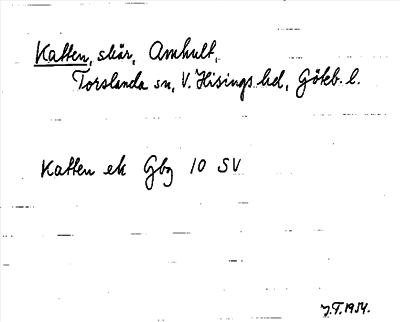 Katten, skär, Amhult,
Torslanda sn, V. Hisings hd, Götеb. l.
Katten ek Gbg 10 SV
J.T. 1954.